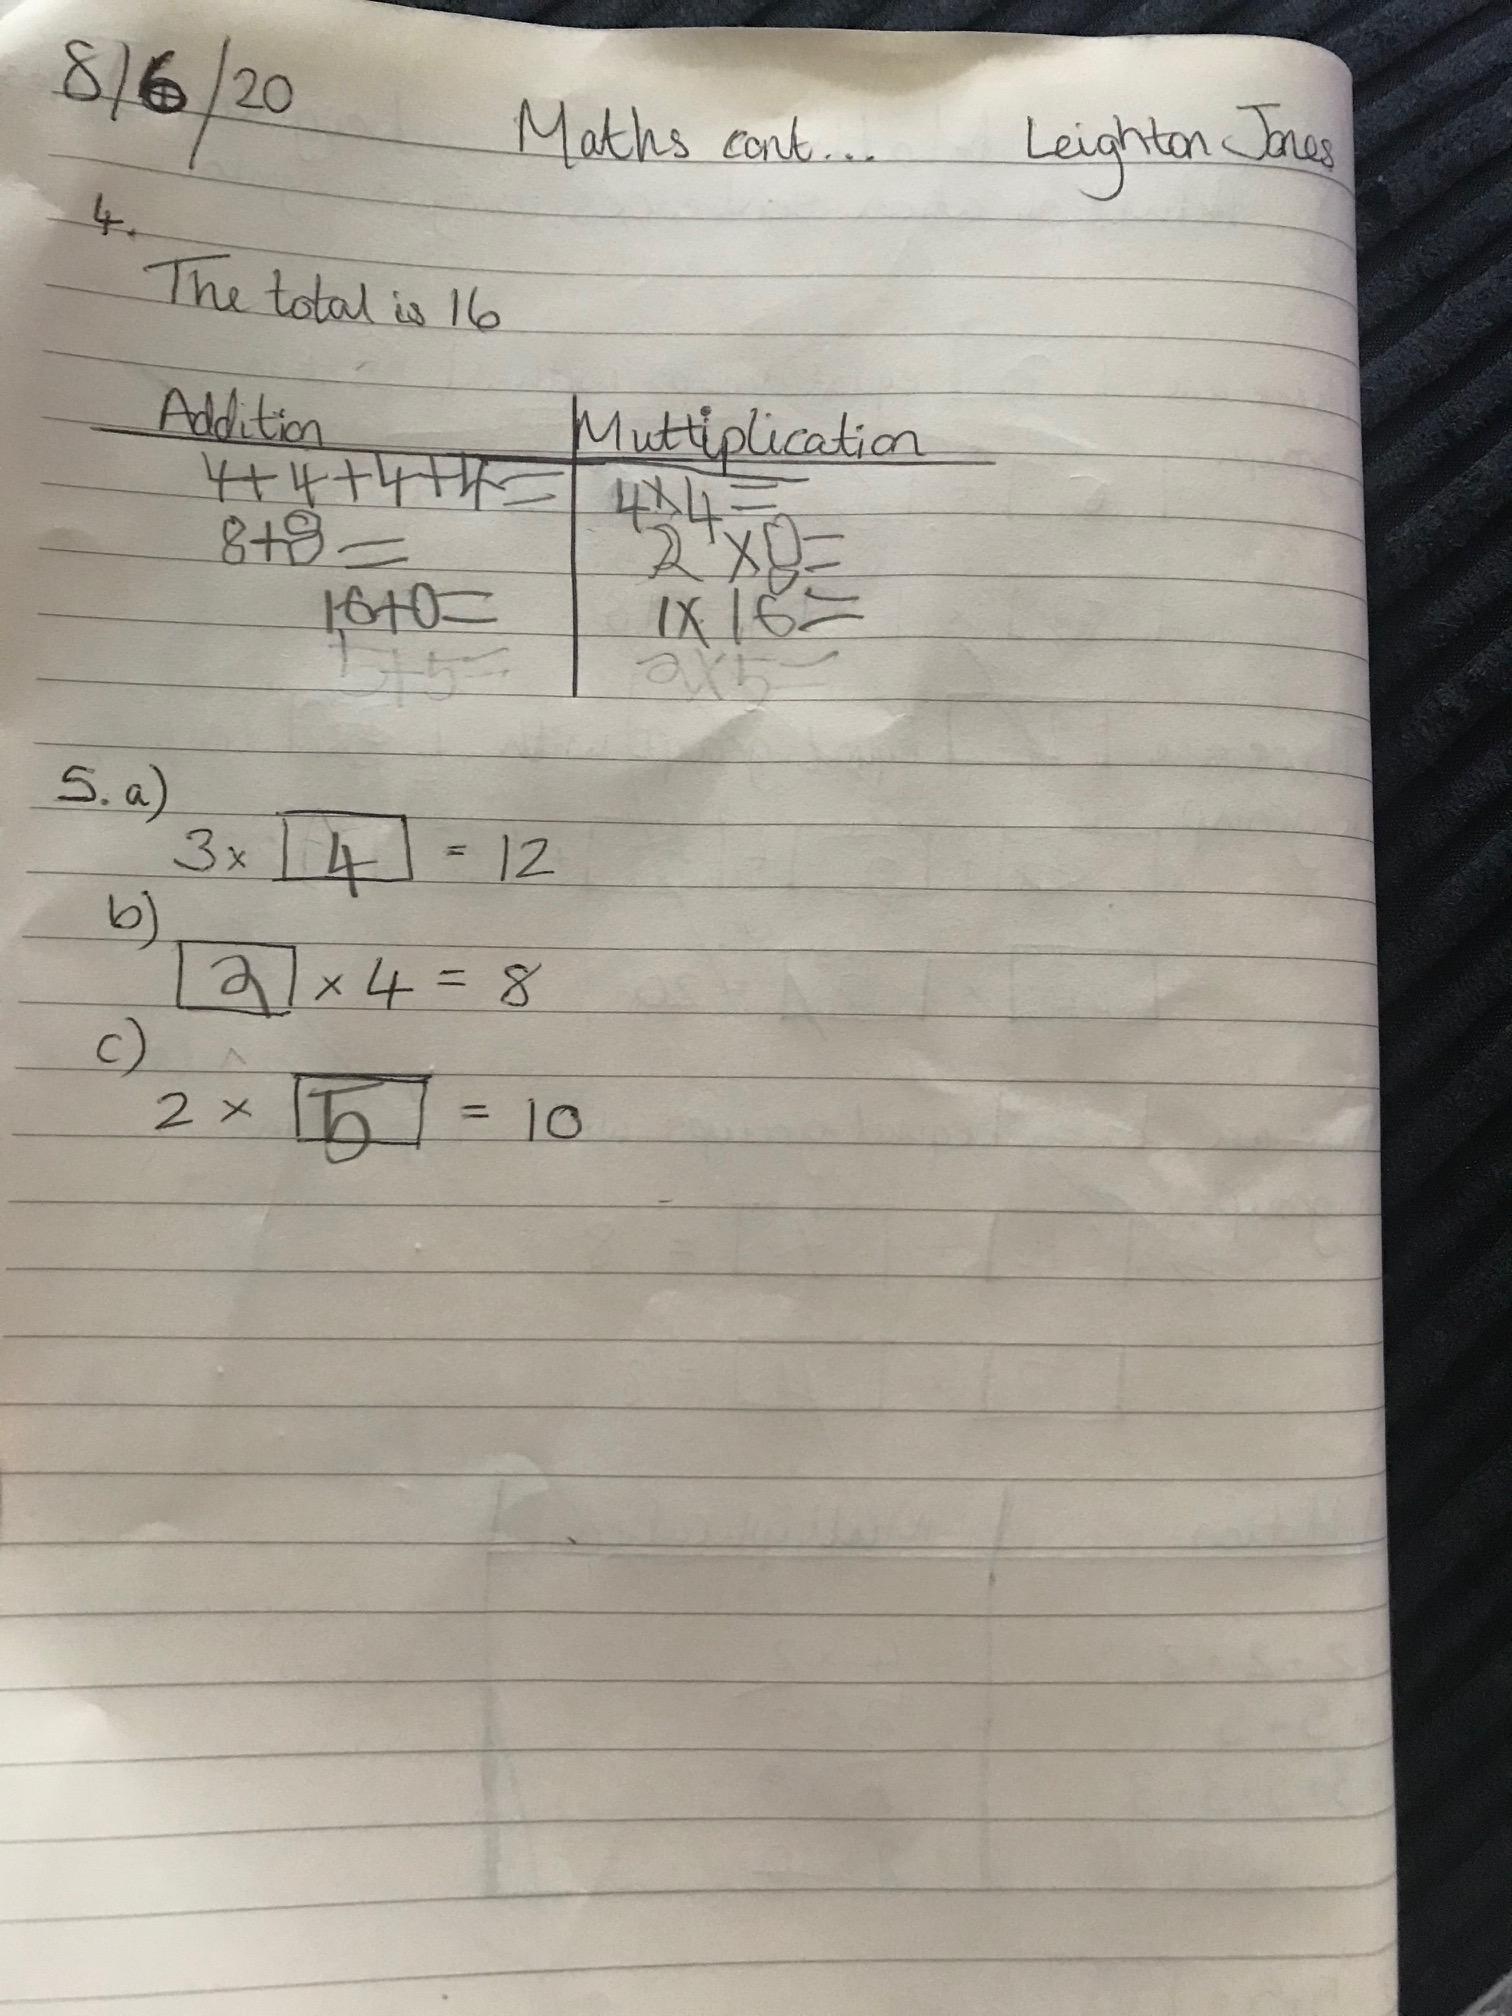 8/6/20
Maths cont... Leighton Jones
4.
The total is 16
Addition Multiplication
4+4+4+4= 4x4=
8+8= 2x8=
16+0= 1x16=
5+5= 2x5=
5. a)
3x 4 = 12
b)
2 x 4 = 8
c)
2 x 5 = 10